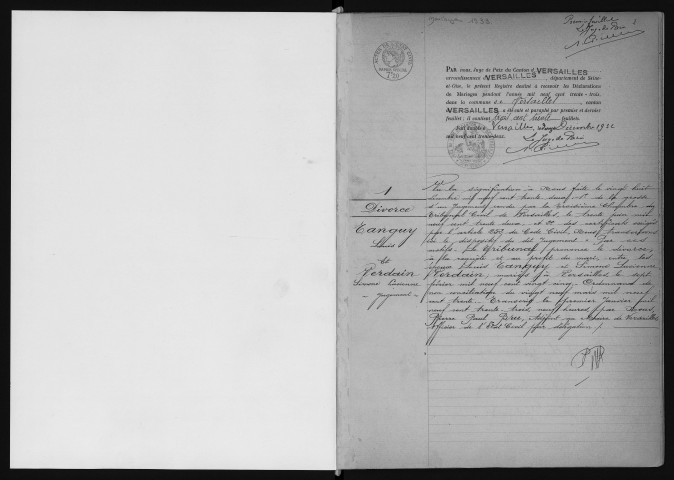 Mariages 1933
Premier feuillet
Le Juge de Paix
PAR nous, Juge de Paix du Canton de VERSAILLES
arrondissement de VERSAILLES, département de Seine-
et-Oise, le présent Registre destiné à recevoir les Déclarations
de Mariages pendant l'année mil neuf cent trente-trois,
dans la commune de Versailles, canton
VERSAILLES a été coté et paraphé par premier et dernier
feuillet; il contient trois cent trente feuillets.
Fait double à Versailles, Décembre 1932
mil neuf cent trente-deux.
Le Juge de Paix
1
Divorce
Tanguy
Louis
et
Verdain
Simone Lucienne
- Jugement -
signification à Nous faite le vingt huit
mil neuf cent trente deux
d'un Jugement rendu par la troisième Chambre du
Tribunal Civil de Versailles, le trente juin mil
neuf cent trente deux, et des certificats exigés
par l'article 252 du Code Civil, Nous transcrivons
ici le dispositif du dit Jugement: Par ces
motifs. Le Tribunal prononce le divorce,
à la requête et au profit du mari, entre les
époux Louis Tanguy et Simone Lucienne
Verdain, mariés à Versailles le sept
mil neuf cent vingt cinq. Ordonnance de
non conciliation du vingt neuf mai mil neuf
cent trente. Transcrit le premier Janvier mil
neuf cent trente trois, neuf heures, par Nous,
Pierre Paul, Adjoint au Maire de Versailles,
Officier de l'Etat Civil par délégation.